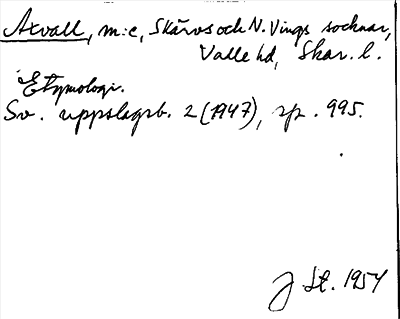 Axvall, m:e, Skärvs och N. Vings socknar,
Valle hd, Skar. l.
Etymologi.
Sv. uppslagsb. 2 (1947), sp. 995.
J St. 1954